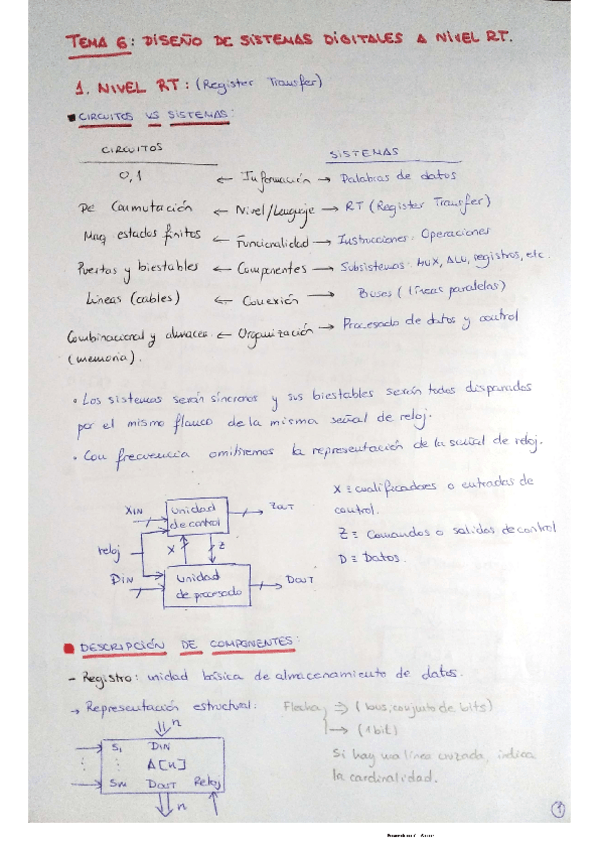 TEMA 6: DISEÑO DE SISTEMAS DIGITALES A NIVEL RT.
1. NIVEL RT: (Register Transfer)
CIRCUITOS VS SISTEMAS:
CIRCUITOS SISTEMAS
0,1 ← Información → Palabras de datos
De Conmutación ← Nivel/Lenguaje → RT (Register Transfer)
Maq estados finitos ← Funcionalidad → Instrucciones. Operaciones
Puertas y biestables ← Componentes → Subsistemas: MUX, ALU, registros, etc.
Líneas (cables) ← Conexión → Buses (líneas paralelas)
Combinacional y almacec ← Organización → Procesado de datos y control
(memoria).
• Los sistemas serán síncronos y sus biestables serán todos disparados
por el mismo flanco de la misma señal de reloj.
• Con frecuencia omitiremos la representación de la señal de reloj.
XIN unidad de control ZOUT
reloj X Z
DIN unidad de procesado DOUT
X ≡ cualificadores o entradas de
control.
Z ≡ Comandos o salidas de control
D ≡ Datos.
DESCRIPCIÓN DE COMPONENTES:
- Registro: unidad básica de almacenamiento de datos.
→ Representación estructural: Flecha ⇒ (bus, conjunto de bits)
→ (1 bit)
Si hay una línea cruzada, indica
la cardinalidad.
n
S1 DIN
⋮ ⋮ A[n]
Sm DOUT Reloj
n
1